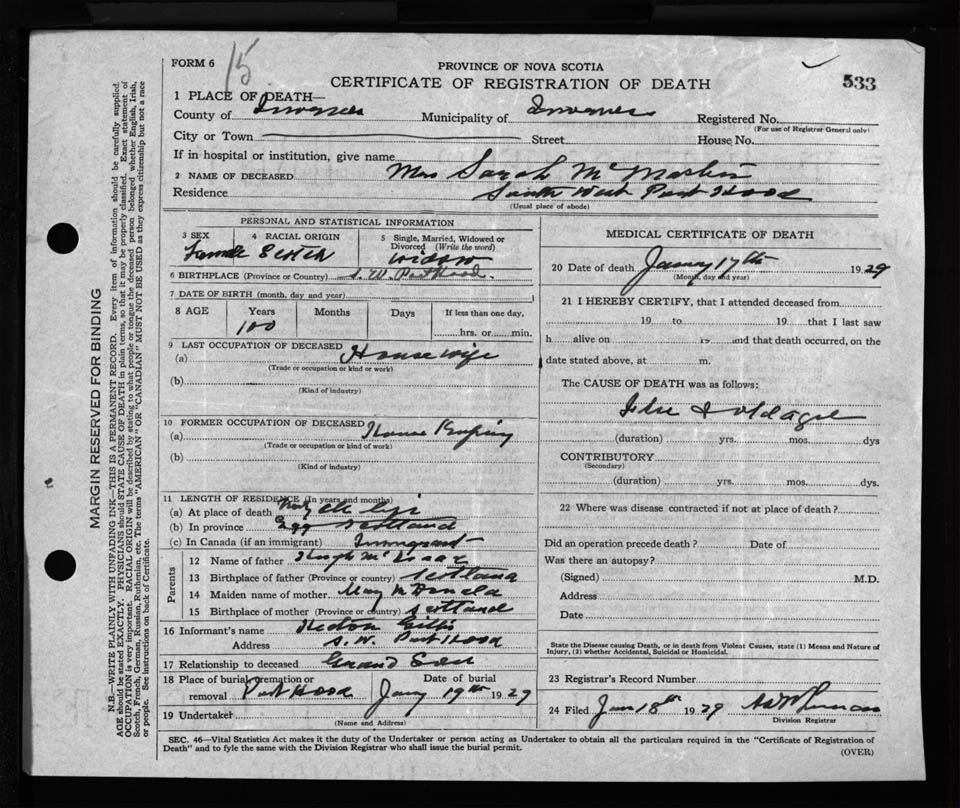 FORM 6
15
PROVINCE OF NOVA SCOTIA
CERTIFICATE OF REGISTRATION OF DEATH
533
1 PLACE OF DEATH—
County of Inverness Municipality of Inverness Registered No.
(For use of Registrar General only)
City or Town Street House No.
If in hospital or institution, give name
2 NAME OF DECEASED Mrs Sarah McMaster
Residence South West Port Hood
(Usual place of abode)
PERSONAL AND STATISTICAL INFORMATION
3 SEX 4 RACIAL ORIGIN 5 Single, Married, Widowed or Divorced (Write the word)
Female Scotch widow
6 BIRTHPLACE (Province or Country) S. W. Port Hood.
7 DATE OF BIRTH (month, day and year)
8 AGE Years Months Days If less than one day,
100 hrs. or min.
9 LAST OCCUPATION OF DECEASED
(a) House wife
(Trade or occupation or kind or work)
(b)
(Kind of industry)
10 FORMER OCCUPATION OF DECEASED
(a) House
(Trade or occupation or kind of work)
(b)
(Kind of industry)
11 LENGTH OF RESIDENCE (In years and months)
(a) At place of death
(b) In province Scotland
(c) In Canada (if an immigrant) Immigrant
Parents
12 Name of father Hugh
13 Birthplace of father (Province or country) Scotland
14 Maiden name of mother Mary
15 Birthplace of mother (Province or country) Scotland
16 Informant's name Gillis
Address S. W. Port Hood
17 Relationship to deceased Grand Son
18 Place of burial, cremation or removal Port Hood Date of burial Jany 19th 1929
19 Undertaker
(Name and Address)
MEDICAL CERTIFICATE OF DEATH
20 Date of death Jany 17th 1929
(Month, day and year)
21 I HEREBY CERTIFY, that I attended deceased from
19 to 19 that I last saw
h alive on 19 and that death occurred, on the
date stated above, at m.
The CAUSE OF DEATH was as follows:
old age
(duration) yrs. mos. dys
CONTRIBUTORY
(Secondary)
(duration) yrs. mos. dys.
22 Where was disease contracted if not at place of death?
Did an operation precede death? Date of
Was there an autopsy?
(Signed) M.D.
Address
Date
State the Disease causing Death, or in death from Violent Causes, state (1) Means and Nature of
Injury, (2) whether Accidental, Suicidal or Homicidal.
23 Registrar's Record Number
24 Filed Jan 18th 1929
Division Registrar
SEC. 46—Vital Statistics Act makes it the duty of the Undertaker or person acting as Undertaker to obtain all the particulars required in the "Certificate of Registration of
Death" and to fyle the same with the Division Registrar who shall issue the burial permit.
(OVER)
MARGIN RESERVED FOR BINDING
N.B.—WRITE PLAINLY WITH UNFADING INK—THIS IS A PERMANENT RECORD. Every item of information should be carefully supplied.
AGE should be stated EXACTLY. PHYSICIANS should STATE CAUSE OF DEATH in plain terms, so that it may be properly classified. Exact statement of
OCCUPATION is very important. RACIAL ORIGIN will be described by stating to what people or tongue the deceased person belonged whether English, Irish,
Scotch, French, German, Russian, Ruthenian, etc. The terms "AMERICAN" OR "CANADIAN" MUST NOT BE USED as they express citizenship but not a race
or people. See instructions on back of Certificate.